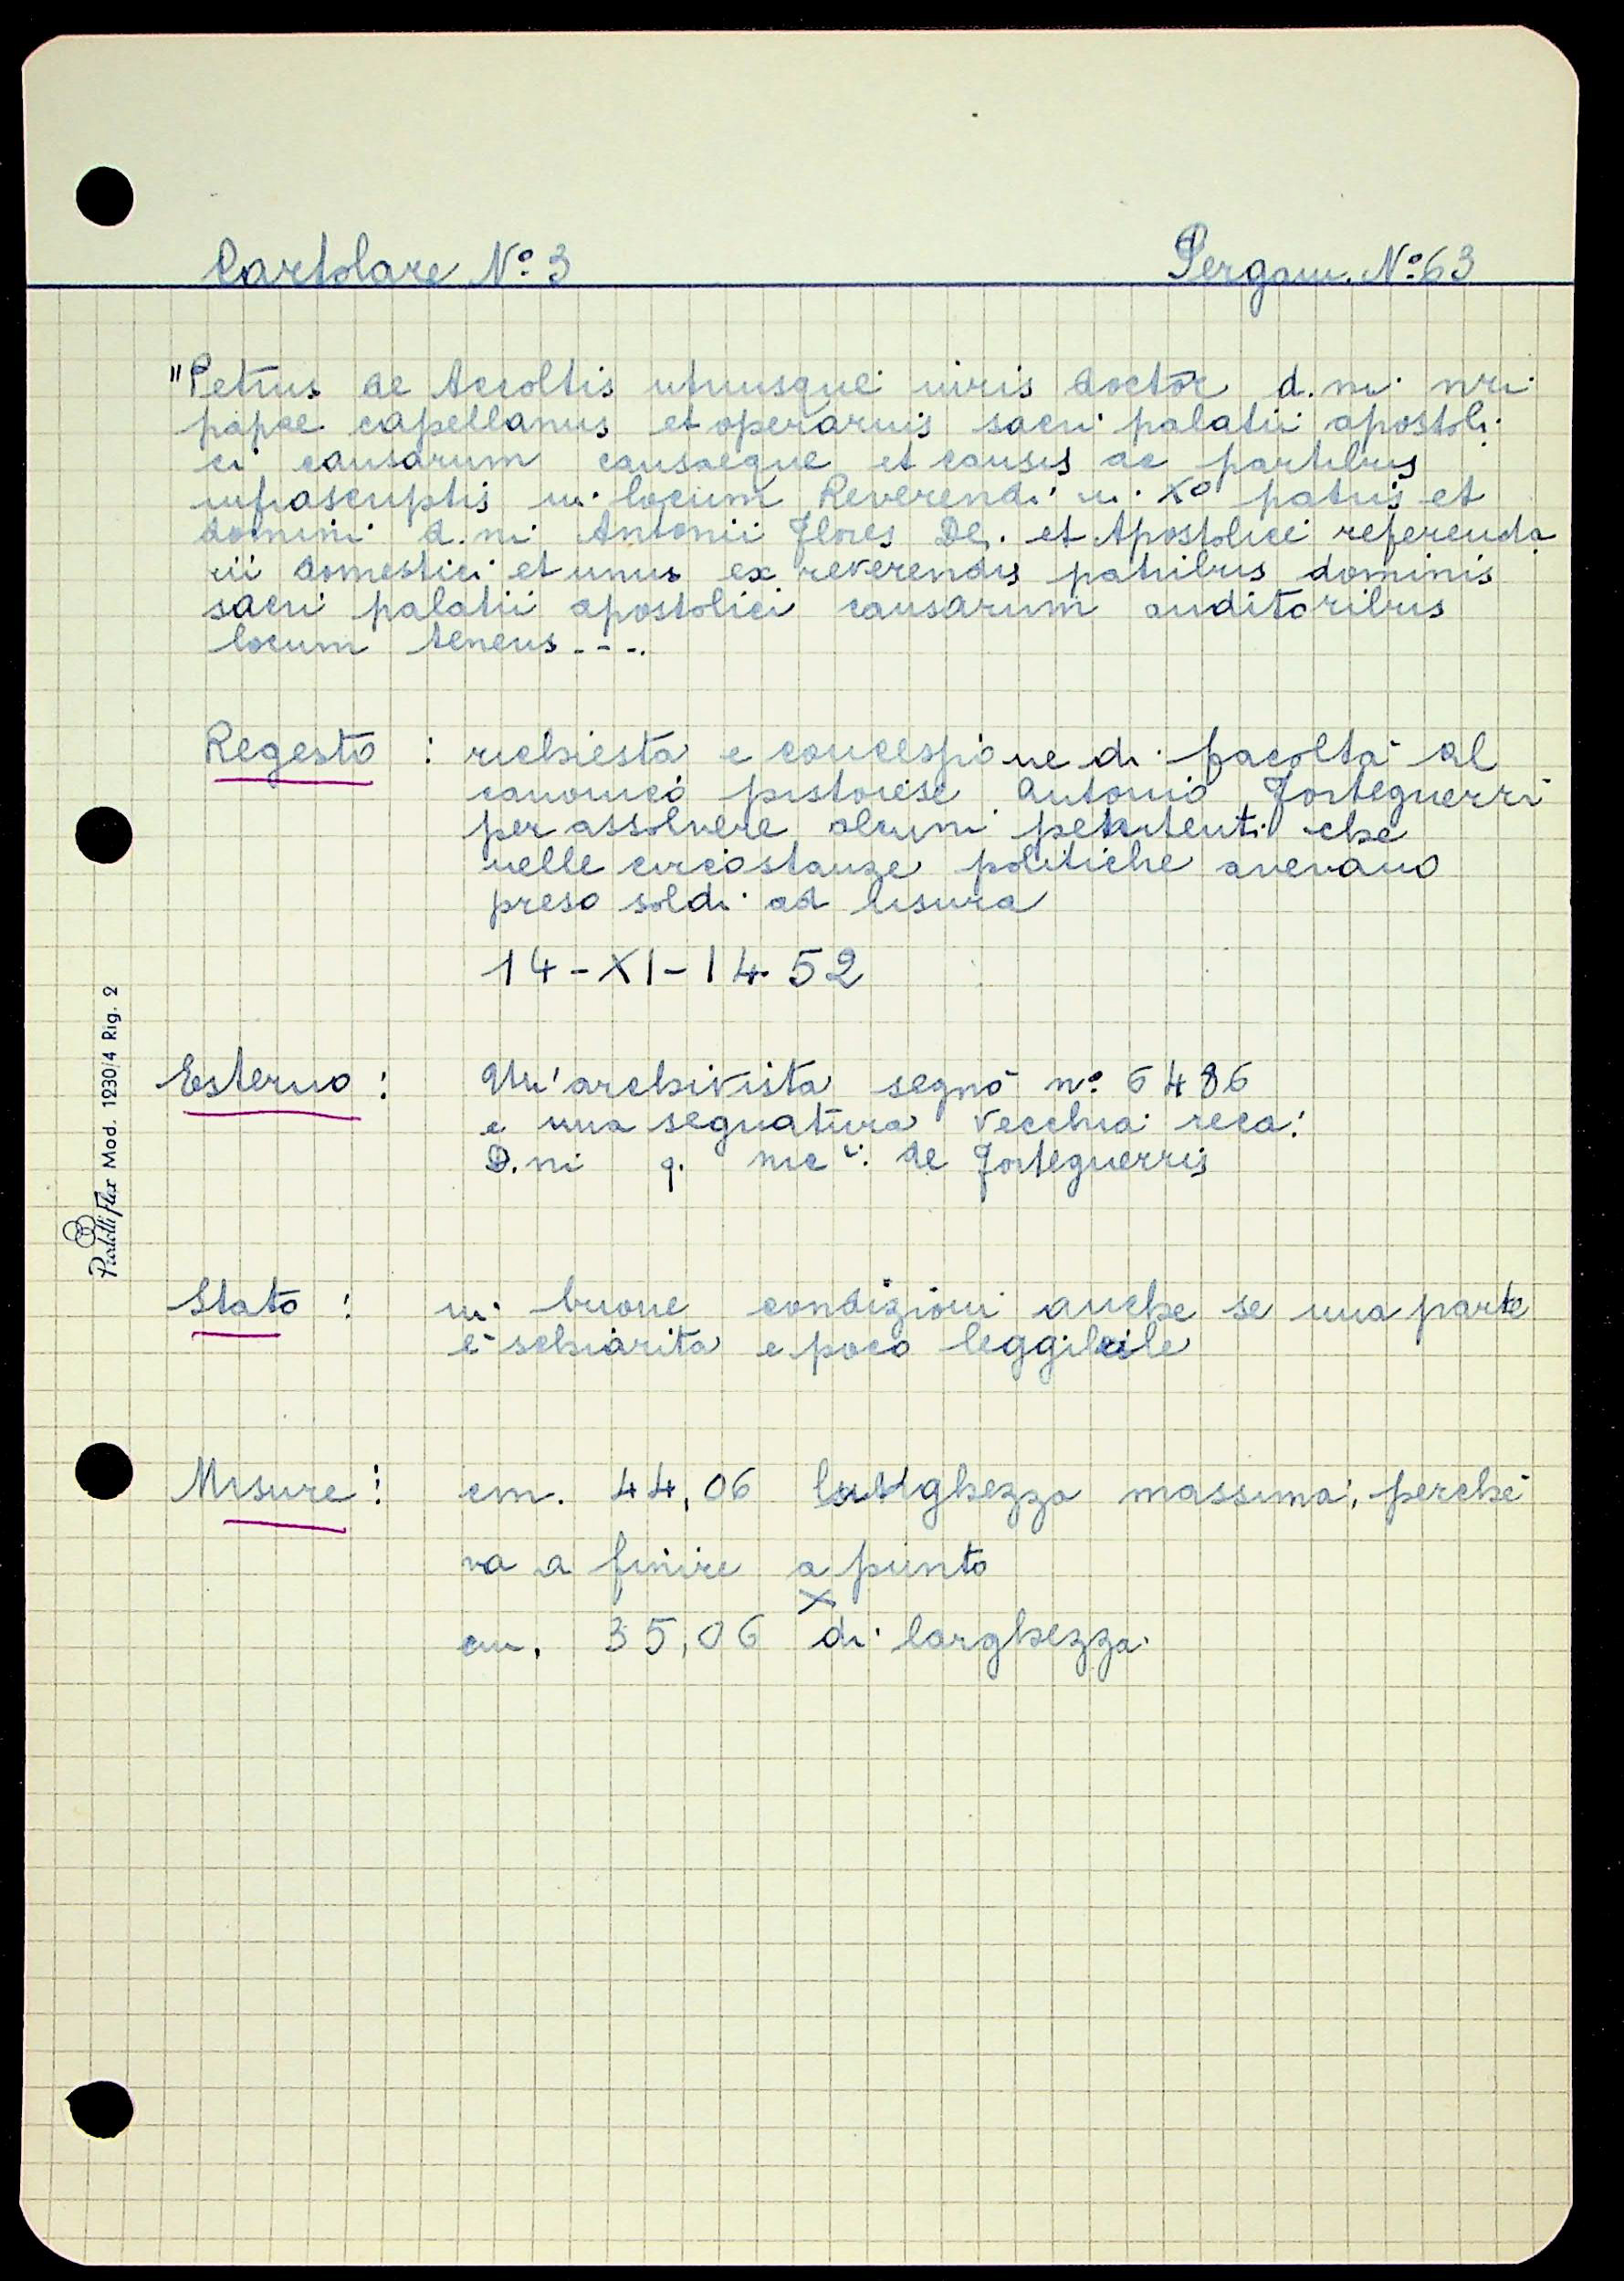 Cartolare N° 3
Pergam. N° 63
"Petrus de Accoltis utriusque iuris doctor d.ni nri
papae capellanus et operarius sacri palatii apostoli
ci causarum causaeque et causis ac partibus
infrascriptis in locum Reverendi in X° patris et
domini d.ni Antonii Flores De. et Apostolici referenda
rii domestici et unus ex reverendis patribus dominis
sacri palatii apostolici causarum auditoribus
locum tenens - - - .
Regesto : richiesta e concessione di facoltà al
canonico pistoiese Antonio Forteguerri
per assolvere alcuni penitenti che
nelle circostanze politiche avevano
preso soldi ad usura
14-XI-1452
Esterno : Un'archivista segnò n° 6486
e una segnatura vecchia reca:
D.ni q. nic i: de Forteguerris
Stato : in buone condizioni anche se una parte
è schiarita e poco leggibile
Misure : cm. 44,06 lunghezza massima, perché
va a finire a punto
x
cm. 35,06 di larghezza
Pratelli Flex Mod. 1230/4 Rig. 2